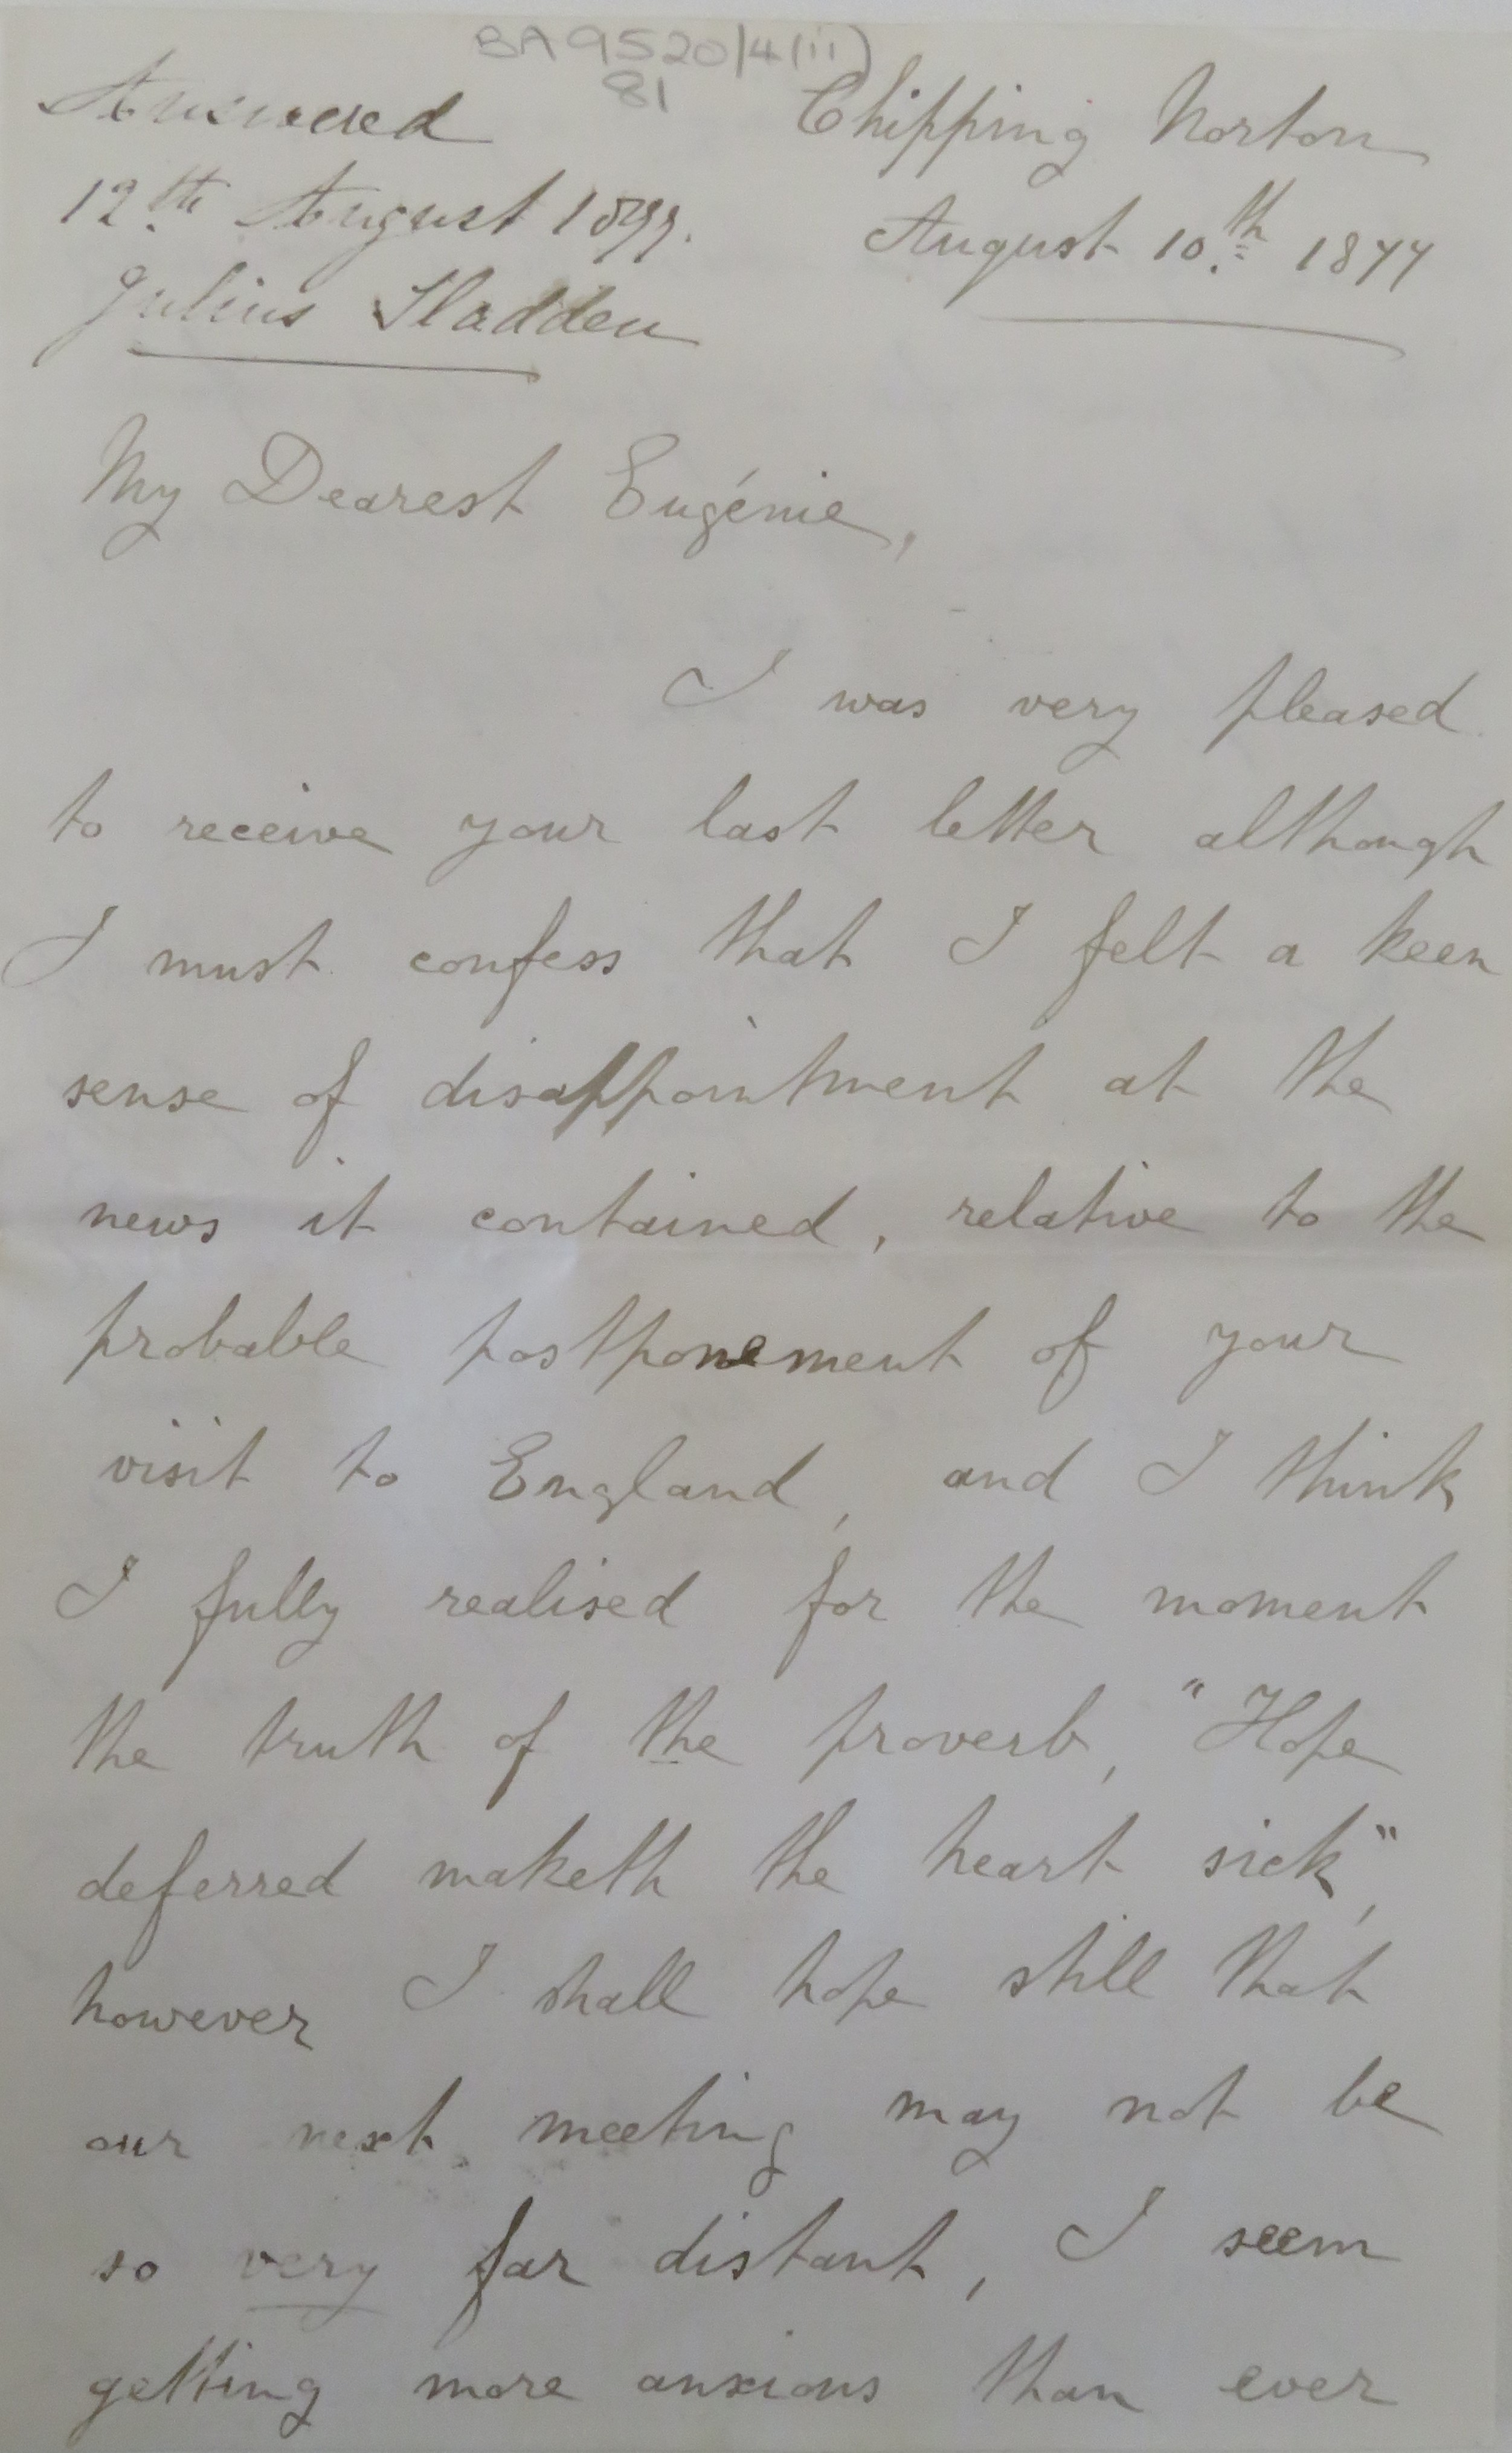 BA9520/4(ii)
81
Answered
12th August 1877.
Julius Sladden
Chipping Norton
August 10th 1877
My Dearest Eugénie,
I was very pleased
to receive your last letter although
I must confess that I felt a keen
sense of disappointment at the
news it contained, relative to the
probable postponement of your
visit to England, and I think
I fully realised for the moment
the truth of the proverb, "Hope
deferred maketh the heart sick",
however I shall hope still that
our next meeting may not be
so very far distant, I seem
getting more anxious than ever